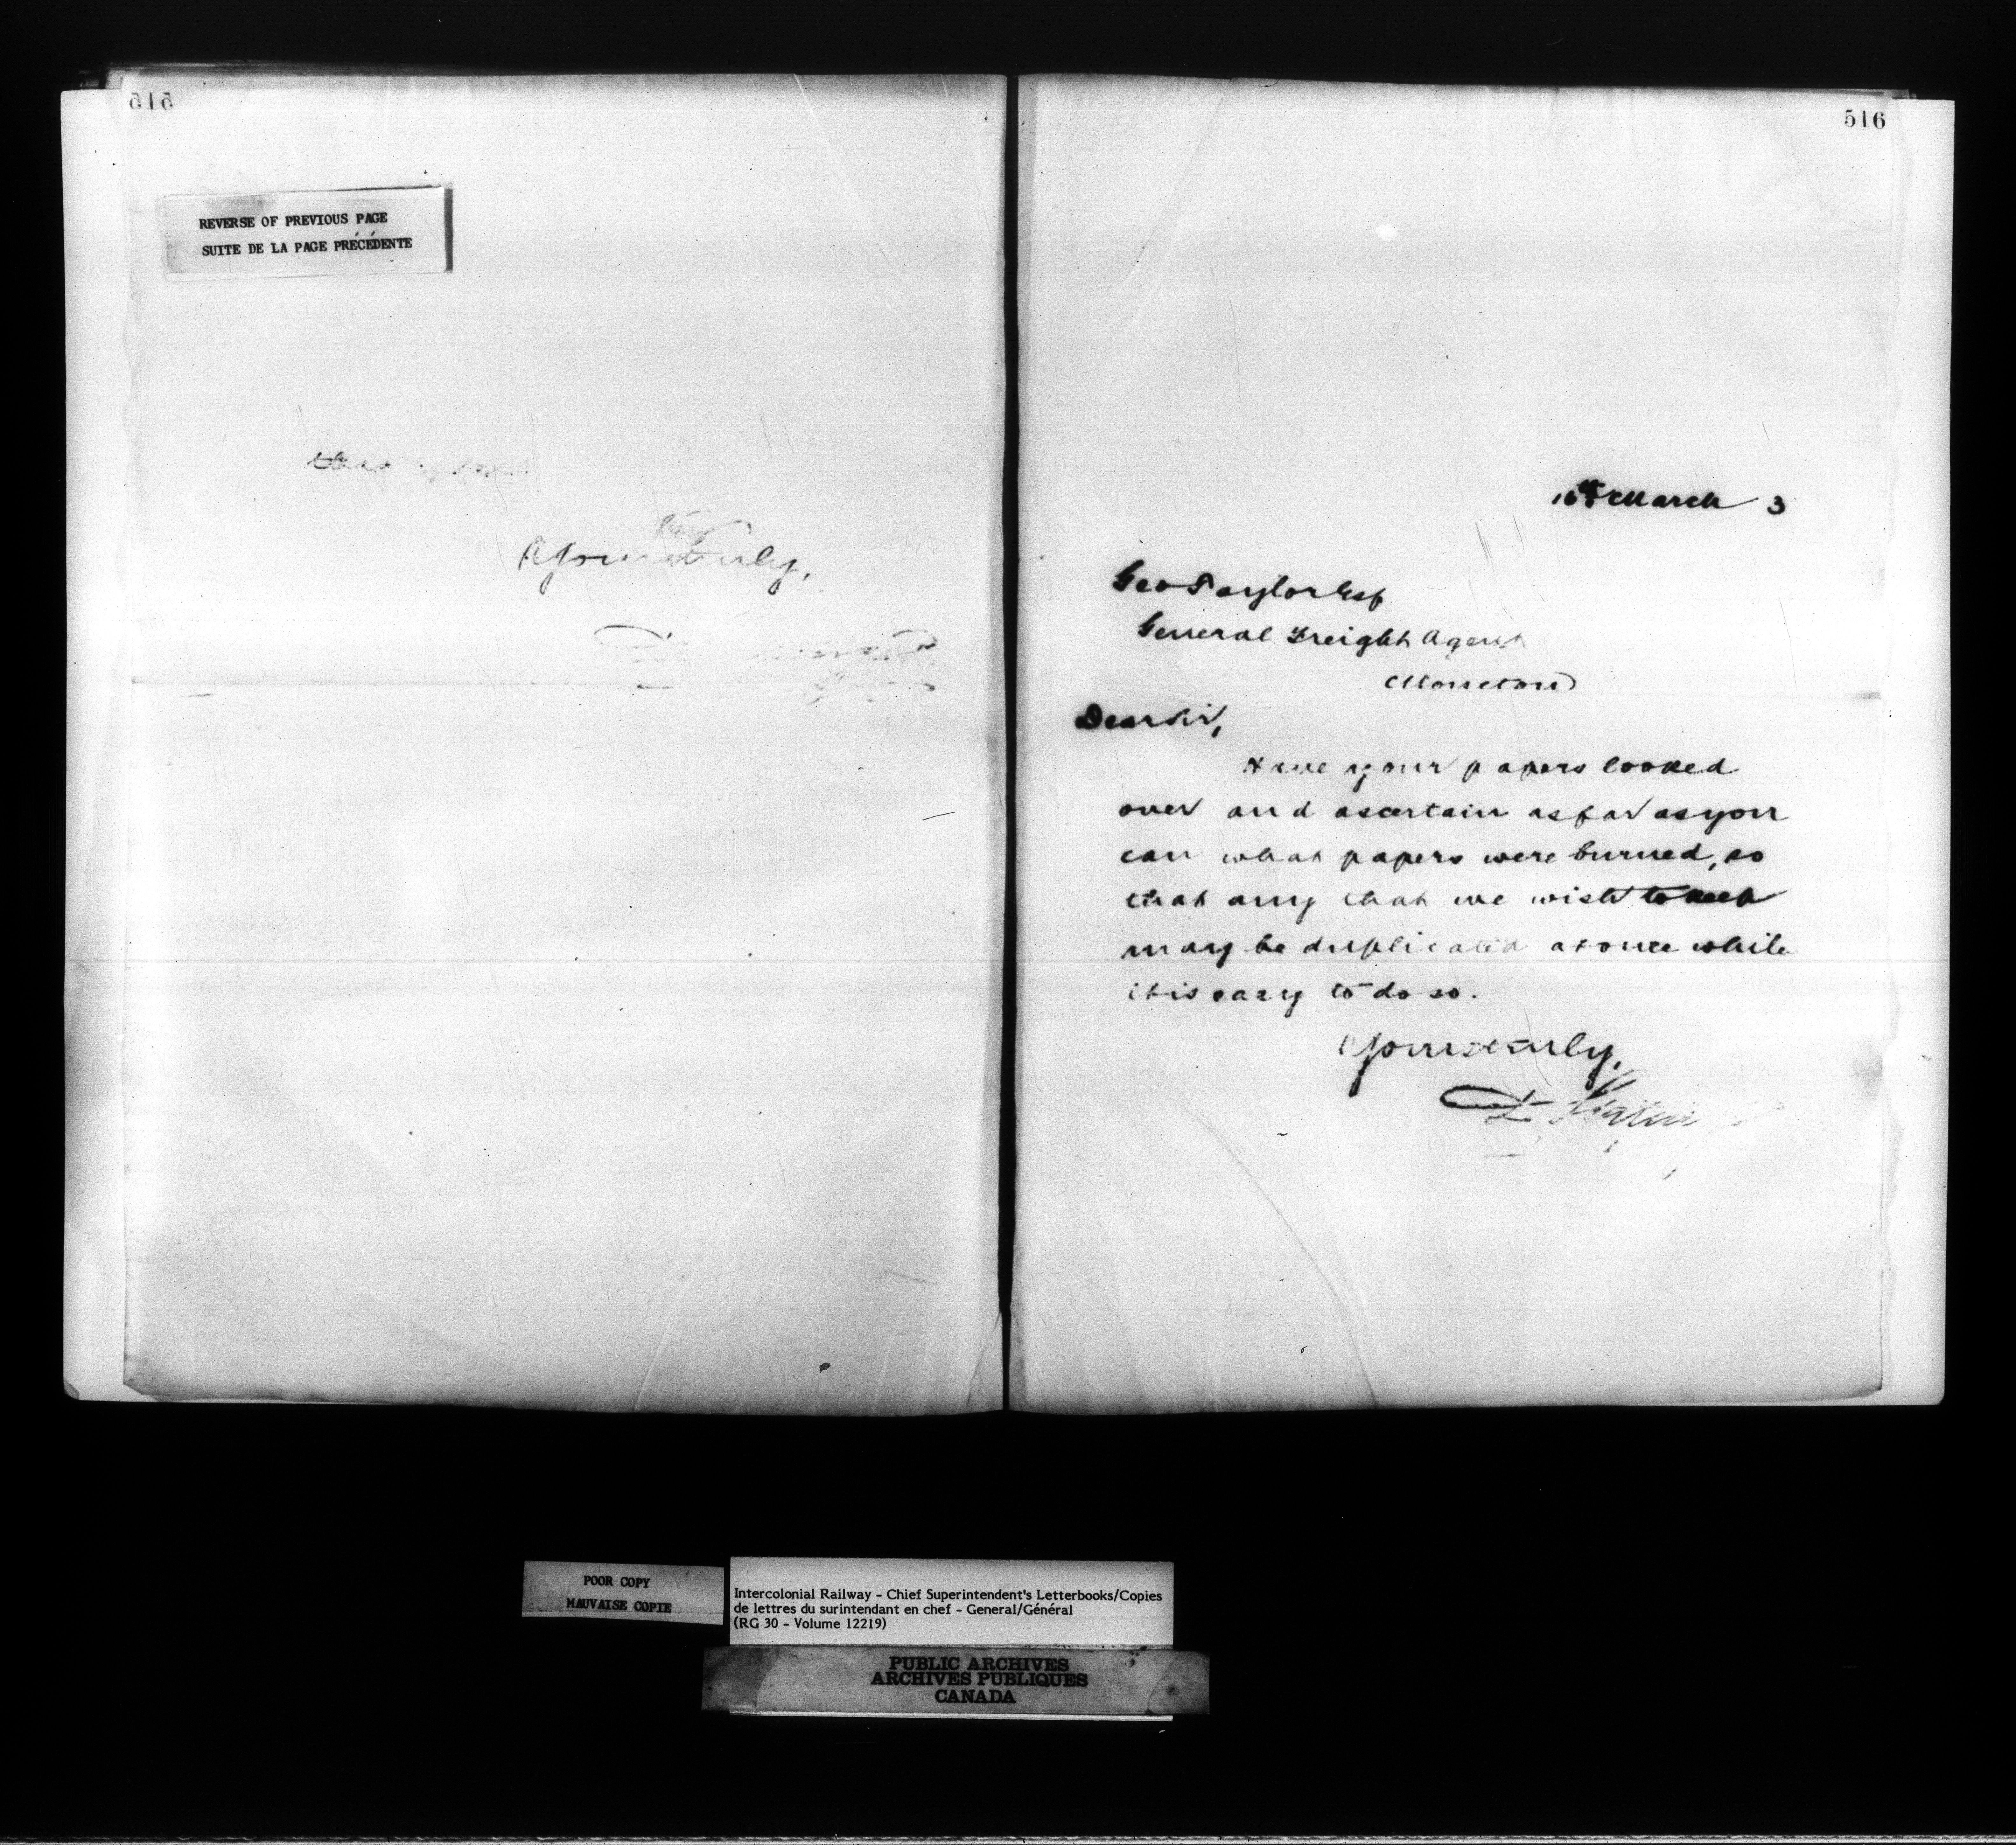 515
REVERSE OF PREVIOUS PAGE
SUITE DE LA PAGE PRÉCÉDENTE
Very
Yours truly,
516
16th March 3
Geo Taylor Esq
General Freight Agent
Moncton
Dear Sir,
Have your papers looked
over and ascertain as far as you
can what papers were burned, so
that any that we wish to keep
may be duplicated at once while
it is easy to do so.
Yours truly,
D.
POOR COPY
MAUVAISE COPIE
Intercolonial Railway - Chief Superintendent's Letterbooks/Copies
de lettres du surintendant en chef - General/Général
(RG 30 - Volume 12219)
PUBLIC ARCHIVES
ARCHIVES PUBLIQUES
CANADA